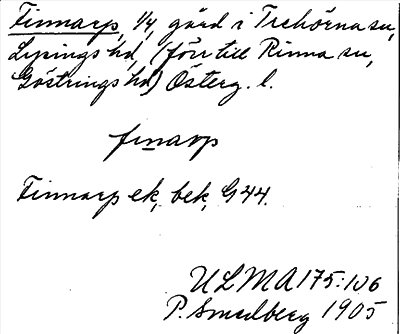 Finnarp, 1/4, gård i Trehörna sn,
Lysings hd, (förr till Rinna sn,
Göstrings hd) Österg. l.
finarp
Finnarp ek, bek, G 44.
ULMA 175:106
P. Smedberg 1905